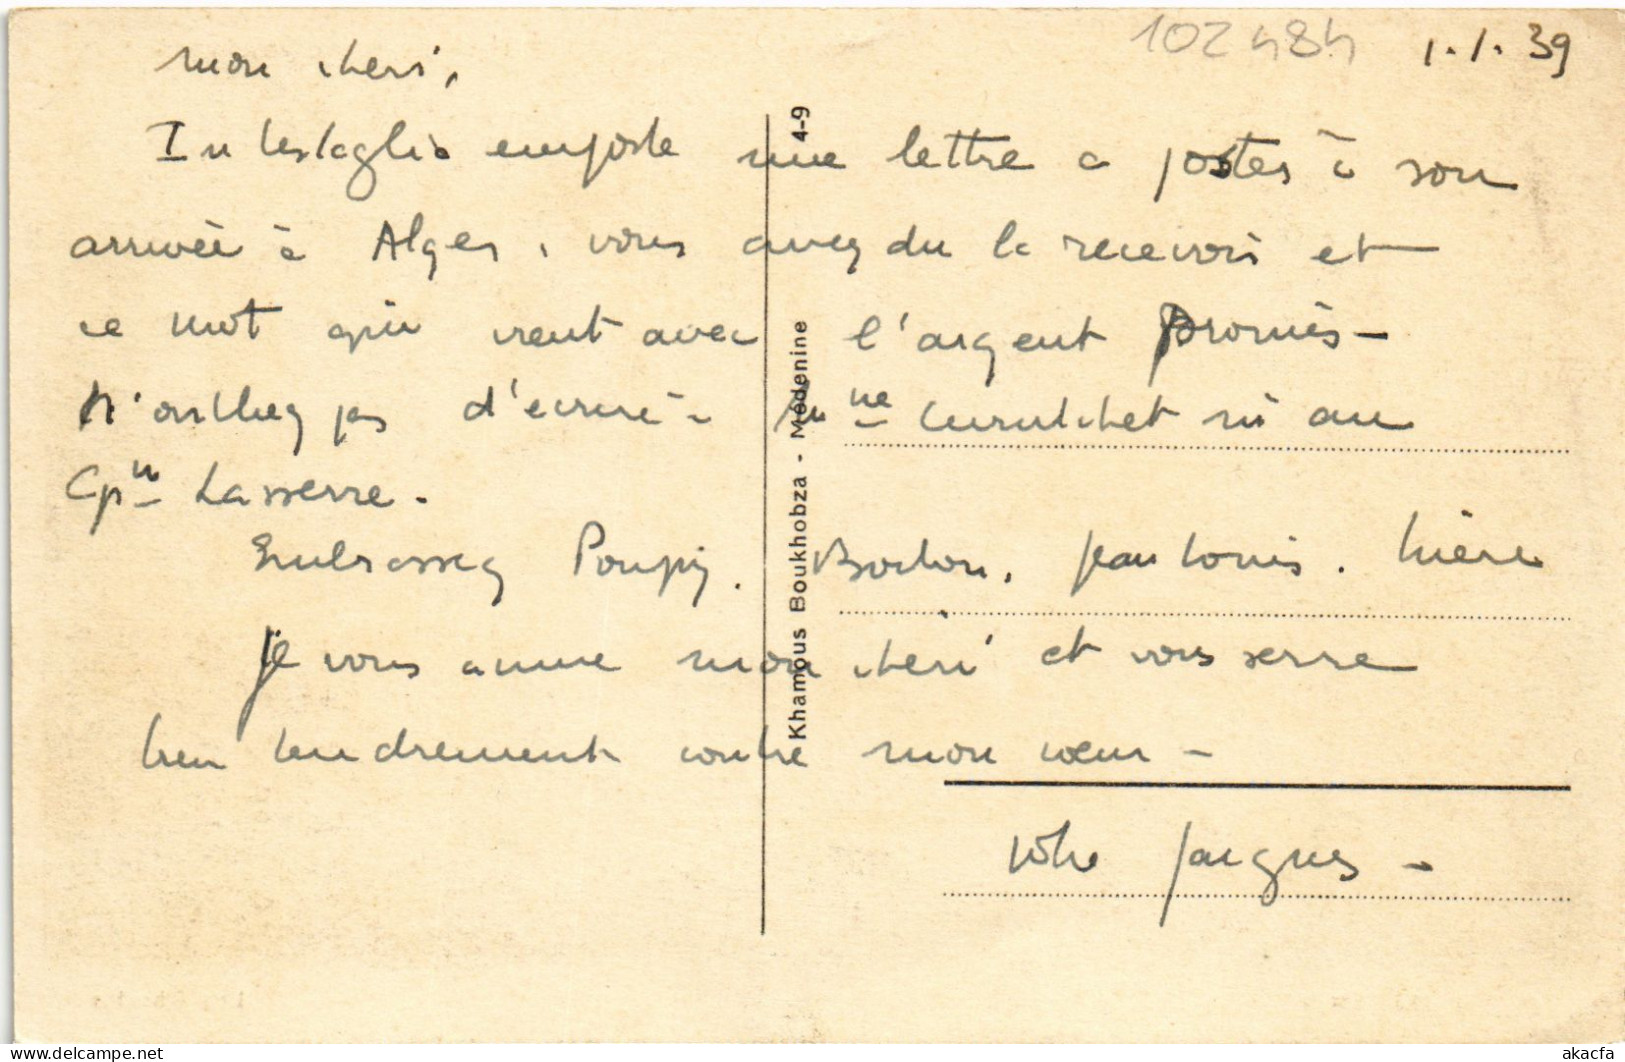 102484 1.1.39
mon cheri,
Intestaglia emporte une lettre a poster à son
arrivée à Alger, vous avez du la recevoir et
ce mot qui vient avec l'argent promis -
N'oubliez pas d'ecrire à Mme Curutchet ni au
Cpn Lasserre -
Embrassez Poupy. Bochon, jean louis.
je vous aime mon cheri et vous serre
bien tendrement contre mon cœur -
Votre Jacques -
Khamous Boukhobza - Médenine 4-9
Delcampe.net
akacfa